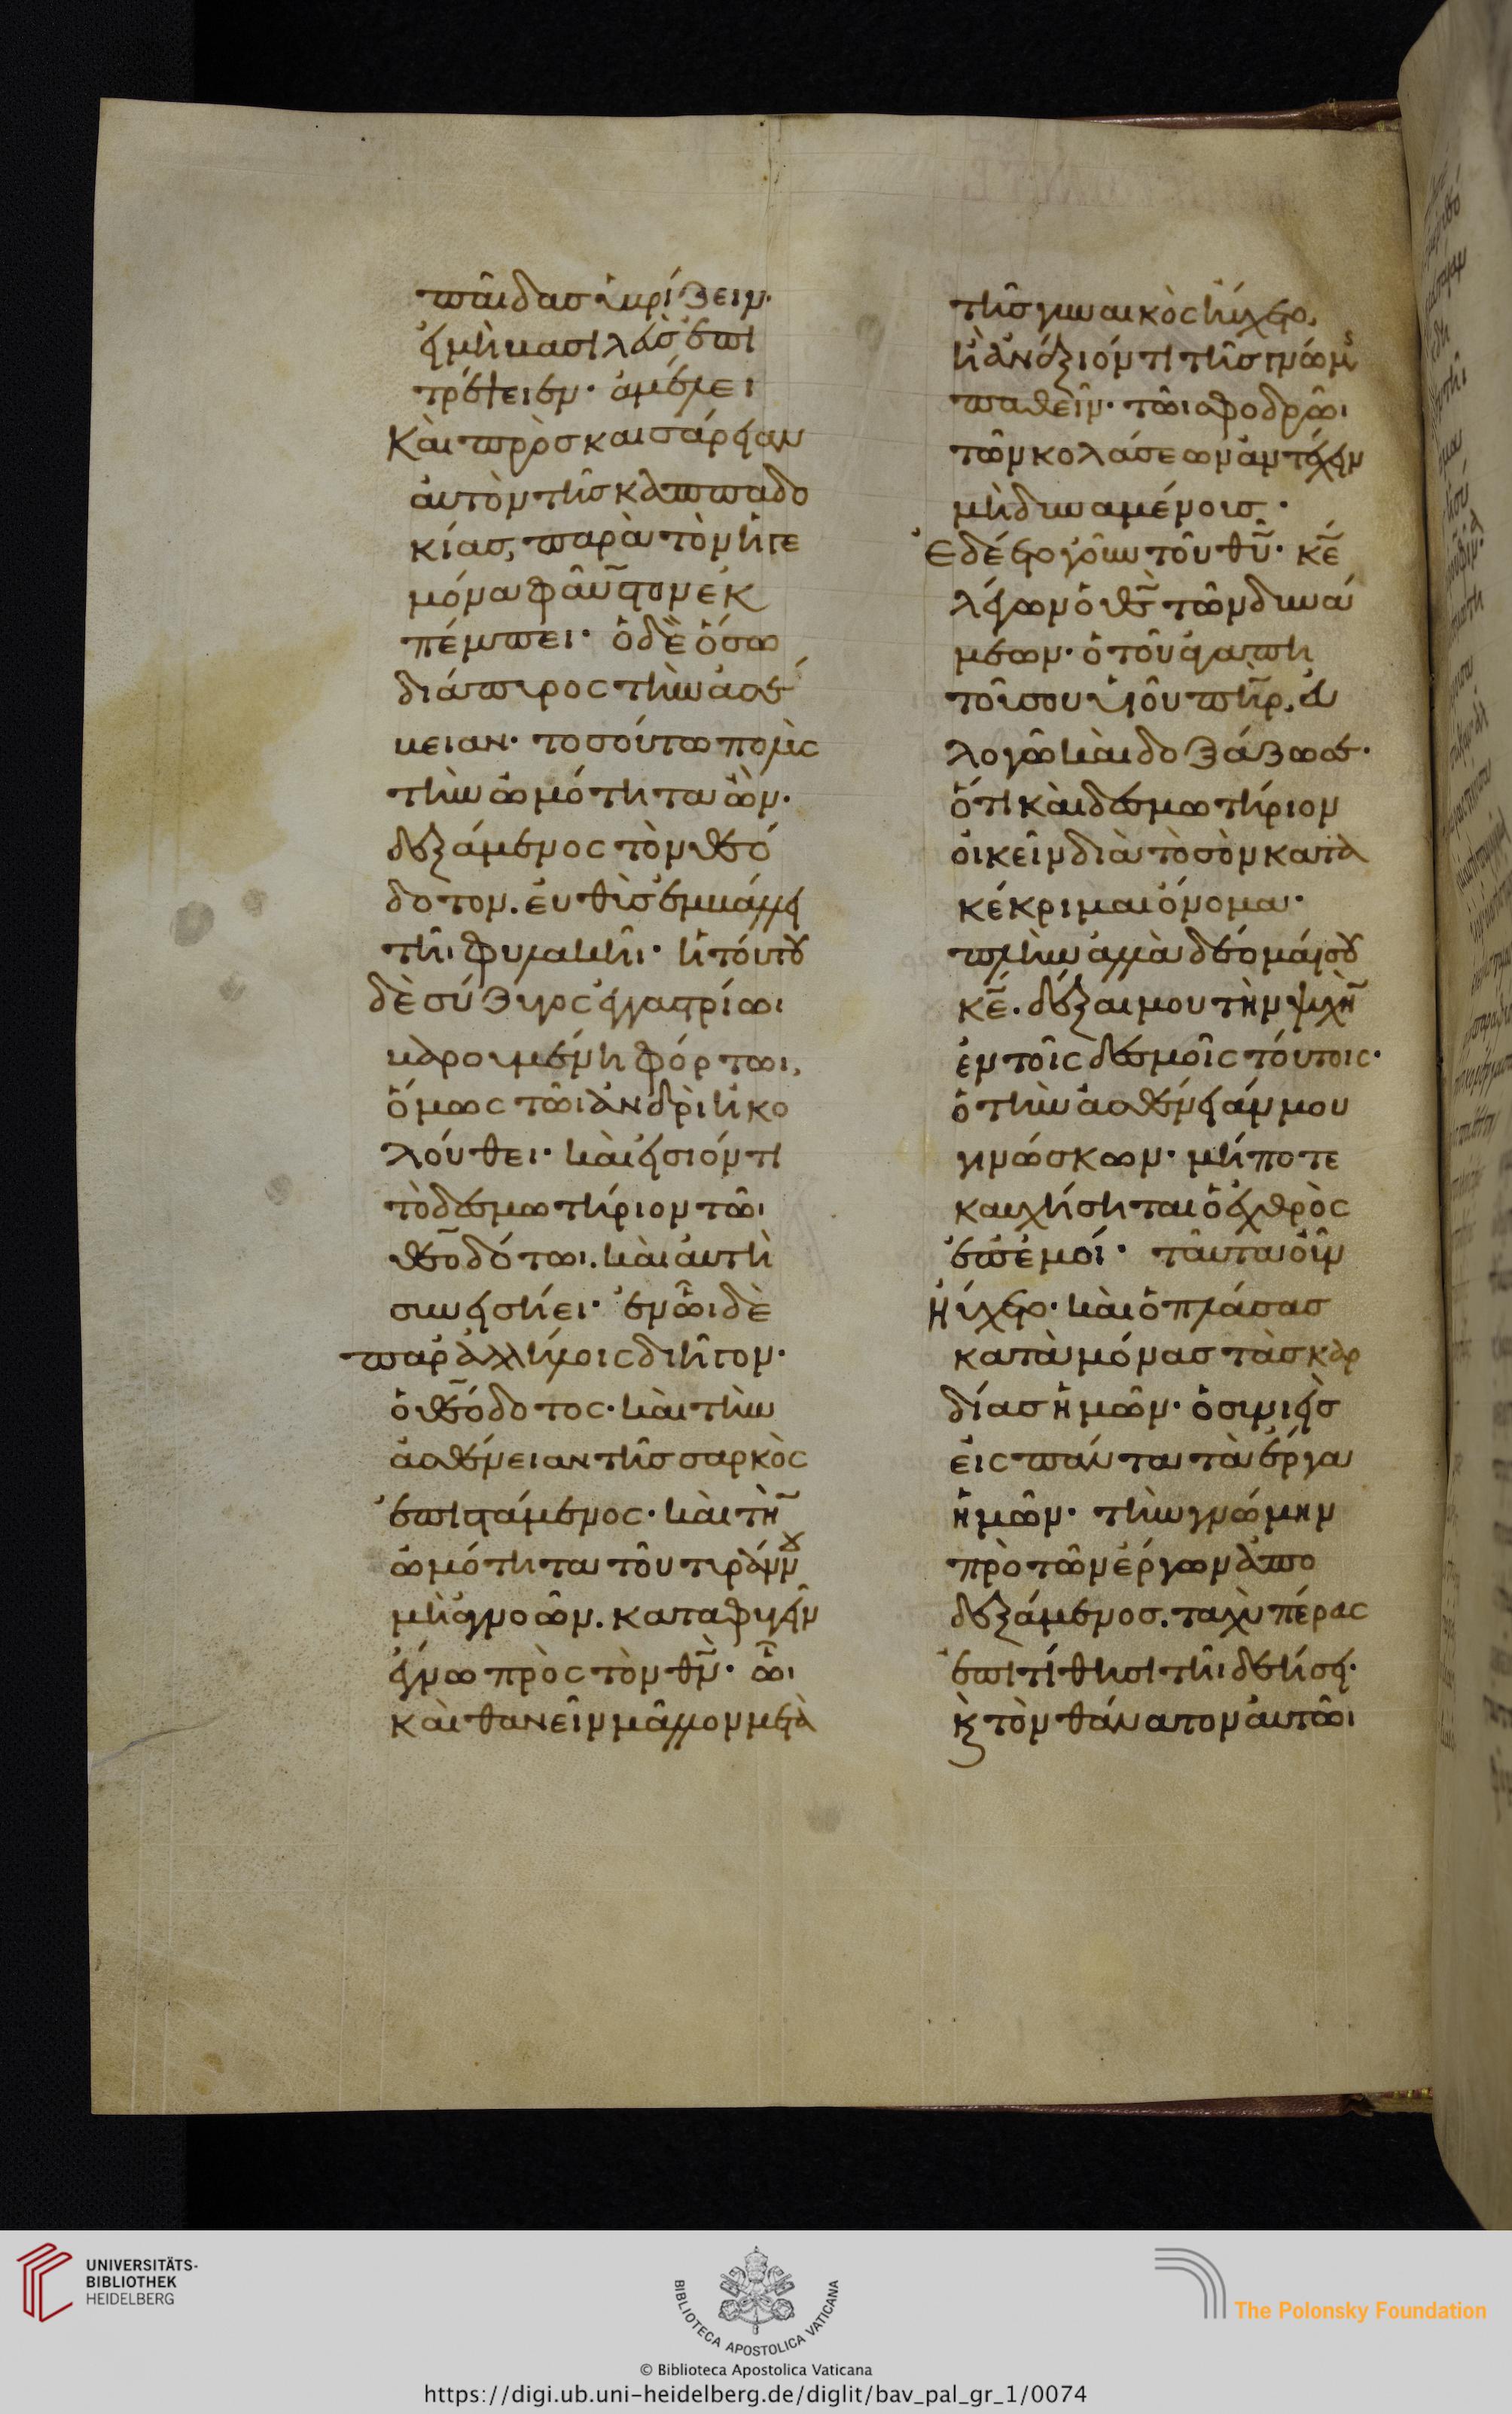 παῖδας ὑβρίζειν·
εἰ μὴ βασιλεὺς ἐπι
τρέψειεν· ἀμέλει
Καὶ πρὸς καισάρειαν
αὐτὸν τῆς καππαδο
κίας, παρὰ τὸν ἡγε
μόνα φαῦστον ἐκ
πέμπει· ὁ δὲ ὅσω
διάπυρος τὴν ἀσέ
βειαν· τοσούτω πολὺς
τὴν ὠμότητα ὤν·
δεξάμενος τὸν θεό
δοτον. εὐθὺς ἐμβάλλει
τῆι φυλακῆι· ἡ τούτου
δὲ σύζυγος ἐγγαστρίωι
βαρουμένη φόρτωι,
ὅμως τῶι ἀνδρὶ ἠκο
λούθει· καὶ εἰσιόντι
τὸ δεσμωτήριον τῶι
θεοδότωι. καὶ αὐτὴ
συνεισήει· ἐν ὧι δὲ
παρ' ἀλλήλοις διῆγον·
ὁ θεόδοτος· καὶ τὴν
ἀσθένειαν τῆς σαρκὸς
ἐπιστάμενος· καὶ τὴν
ὠμότητα τοῦ τυράννου
μὴ ἀγνοῶν. καταφυγεῖν
ἔγνω πρὸς τὸν θ̅ν̅· ὧι
καὶ θανεῖν μᾶλλον μετὰ
τῆς γυναικὸς ηὔχετο,
ἢ ἀνάξιόν τι τῆς γνώμης
παθεῖν· τῶι σφοδρῶι
τῶν κολάσεων ἀντέχειν
μὴ δυναμένοις·
Ἐδέετο γοῦν τοῦ θ̅υ̅· κ̅ε̅
λέγων ὁ θ̅ς̅ τῶν δυνά
μεων· ὁ τοῦ ἀγαπη
τοῦ σου υἱοῦ π̅η̅ρ̅, εὐ
λογῶ καὶ δοξάζω σε·
ὅτι καὶ δεσμωτήριον
οἰκεῖν διὰ τὸ σὸν κατα
κέκριμαι ὄνομα·
πλὴν ἀλλὰ δέομαί σου
κ̅ε̅. δέξαι μου τὴν ψυχὴν
ἐν τοῖς δεσμοῖς τούτοις·
ὁ τὴν ἀσθένειάν μου
γινώσκων· μήποτε
καυχήσηται ὁ ἐχθρὸς
ἐπ' ἐμοί· ταῦτα οὖν
ηὔχετο· καὶ ὁ πλάσας
κατὰ μόνας τὰς καρ
δίας ἡμῶν· ὁ συνιεὶς
εἰς πάντα τὰ ἔργα
ἡμῶν· τὴν γνώμην
πρὸ τῶν ἔργων ἀπο
δεξάμενος. ταχὺ πέρας
ἐπιτίθησι τῆι δεήσει·
κ̀ τὸν θάνατον αὐτῶι
UNIVERSITÄTS-
BIBLIOTHEK
HEIDELBERG
BIBLIOTECA APOSTOLICA VATICANA
The Polonsky Foundation
© Biblioteca Apostolica Vaticana
https://digi.ub.uni-heidelberg.de/diglit/bav_pal_gr_1/0074